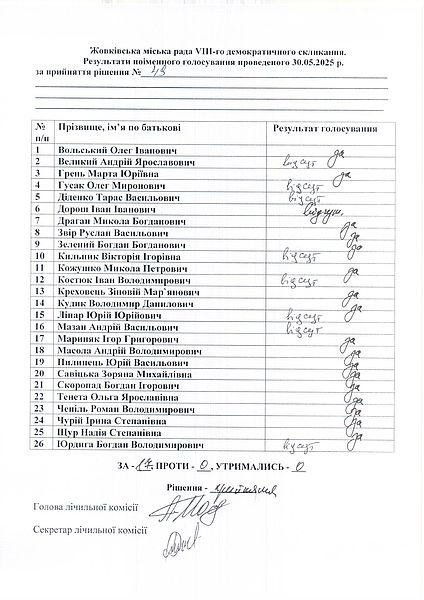 Жовківська міська рада VIII-го демократичного скликання.
Результати поіменного голосування проведеного 30.05.2025 р.
за прийняття рішення № 43
№ п/п Прізвище, ім’я по батькові Результат голосування
1 Вольський Олег Іванович да
2 Великий Андрій Ярославович відсут
3 Грень Марта Юріївна да
4 Гусак Олег Миронович відсут
5 Діденко Тарас Васильович відсут
6 Дорош Іван Іванович відсут.
7 Драган Микола Богданович да
8 Звір Руслан Васильович да
9 Зелений Богдан Богданович да
10 Кильник Вікторія Ігорівна відсут
11 Кожушко Микола Петрович да
12 Костюк Іван Володимирович відсут
13 Креховець Зіновій Мар’янович да
14 Кудик Володимир Данилович да
15 Ліпар Юрій Юрійович відсут
16 Мазан Андрій Васильович відсут
17 Мариняк Ігор Григорович да
18 Масола Андрій Володимирович да
19 Пилипець Юрій Васильович да
20 Савіцька Зоряна Михайлівна да
21 Скоропад Богдан Ігорович да
22 Тенета Ольга Ярославівна да
23 Чепіль Роман Володимирович да
24 Чурій Ірина Степанівна да
25 Щур Надія Степанівна да
26 Юрдига Богдан Володимирович відсут
ЗА - 17, ПРОТИ - 0, УТРИМАЛИСЬ - 0
Рішення - прийняття
Голова лічильної комісії
Секретар лічильної комісії